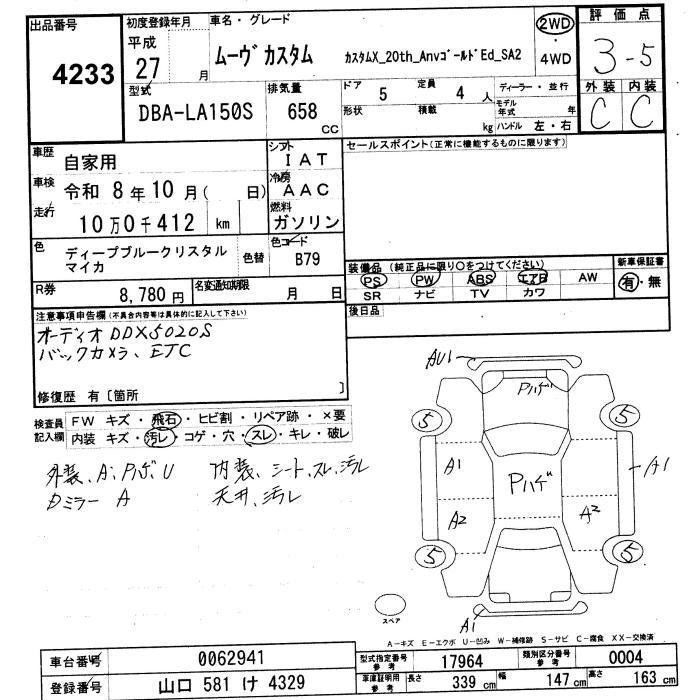 出品番号
4233
初度登録年月
平成
27 月
車名・グレード
ムーヴ カスタム カスタムX_20th_Anvゴールド Ed_SA2
2WD
・
4WD
評価点
3-5
外装 内装
C C
型式
DBA-LA150S
排気量
658
cc
ドア
5
定員
4 人
形状
積載
kg
ディーラー・並行
モデル
年式 年
ハンドル 左・右
車歴
自家用
シフト
I A T
車検
令和 8 年 10 月( 日)
冷房
A A C
走行
10 万 0 千 412 km
燃料
ガソリン
色
ディープブルークリスタル
マイカ
色替
色コード
B79
R券
8,780 円
名変通知期限
月 日
セールスポイント(正常に機能するものに限ります)
装備品(純正品に限り○をつけてください)
PS PW ABS エアB AW
SR ナビ TV カワ
新車保証書
有・無
後日品
注意事項申告欄(不具合内容等は具体的に記入して下さい)
オーディオ DDX5020S
バックカメラ、ETC
修復歴 有〔箇所 〕
検査員
記入欄
FW キズ・飛石・ヒビ割・リペア跡・×要
内装 キズ・汚レ・コゲ・穴・スレ・キレ・破レ
外装、A、Pハゲ、U
内装、シート、スレ、汚レ
ミラー A
天井、汚レ
AU1
Pハゲ
5
5
A1
Pハゲ
A1
A2
A2
5
5
A1
スペア
A-キズ E-エクボ U-凹み W-補修跡 S-サビ C-腐食 XX-交換済
車台番号
0062941
登録番号
山口 581 け 4329
型式指定番号
参考
17964
類別区分番号
参考
0004
車庫証明用
参考
長さ
339 cm
幅
147 cm
高さ
163 cm